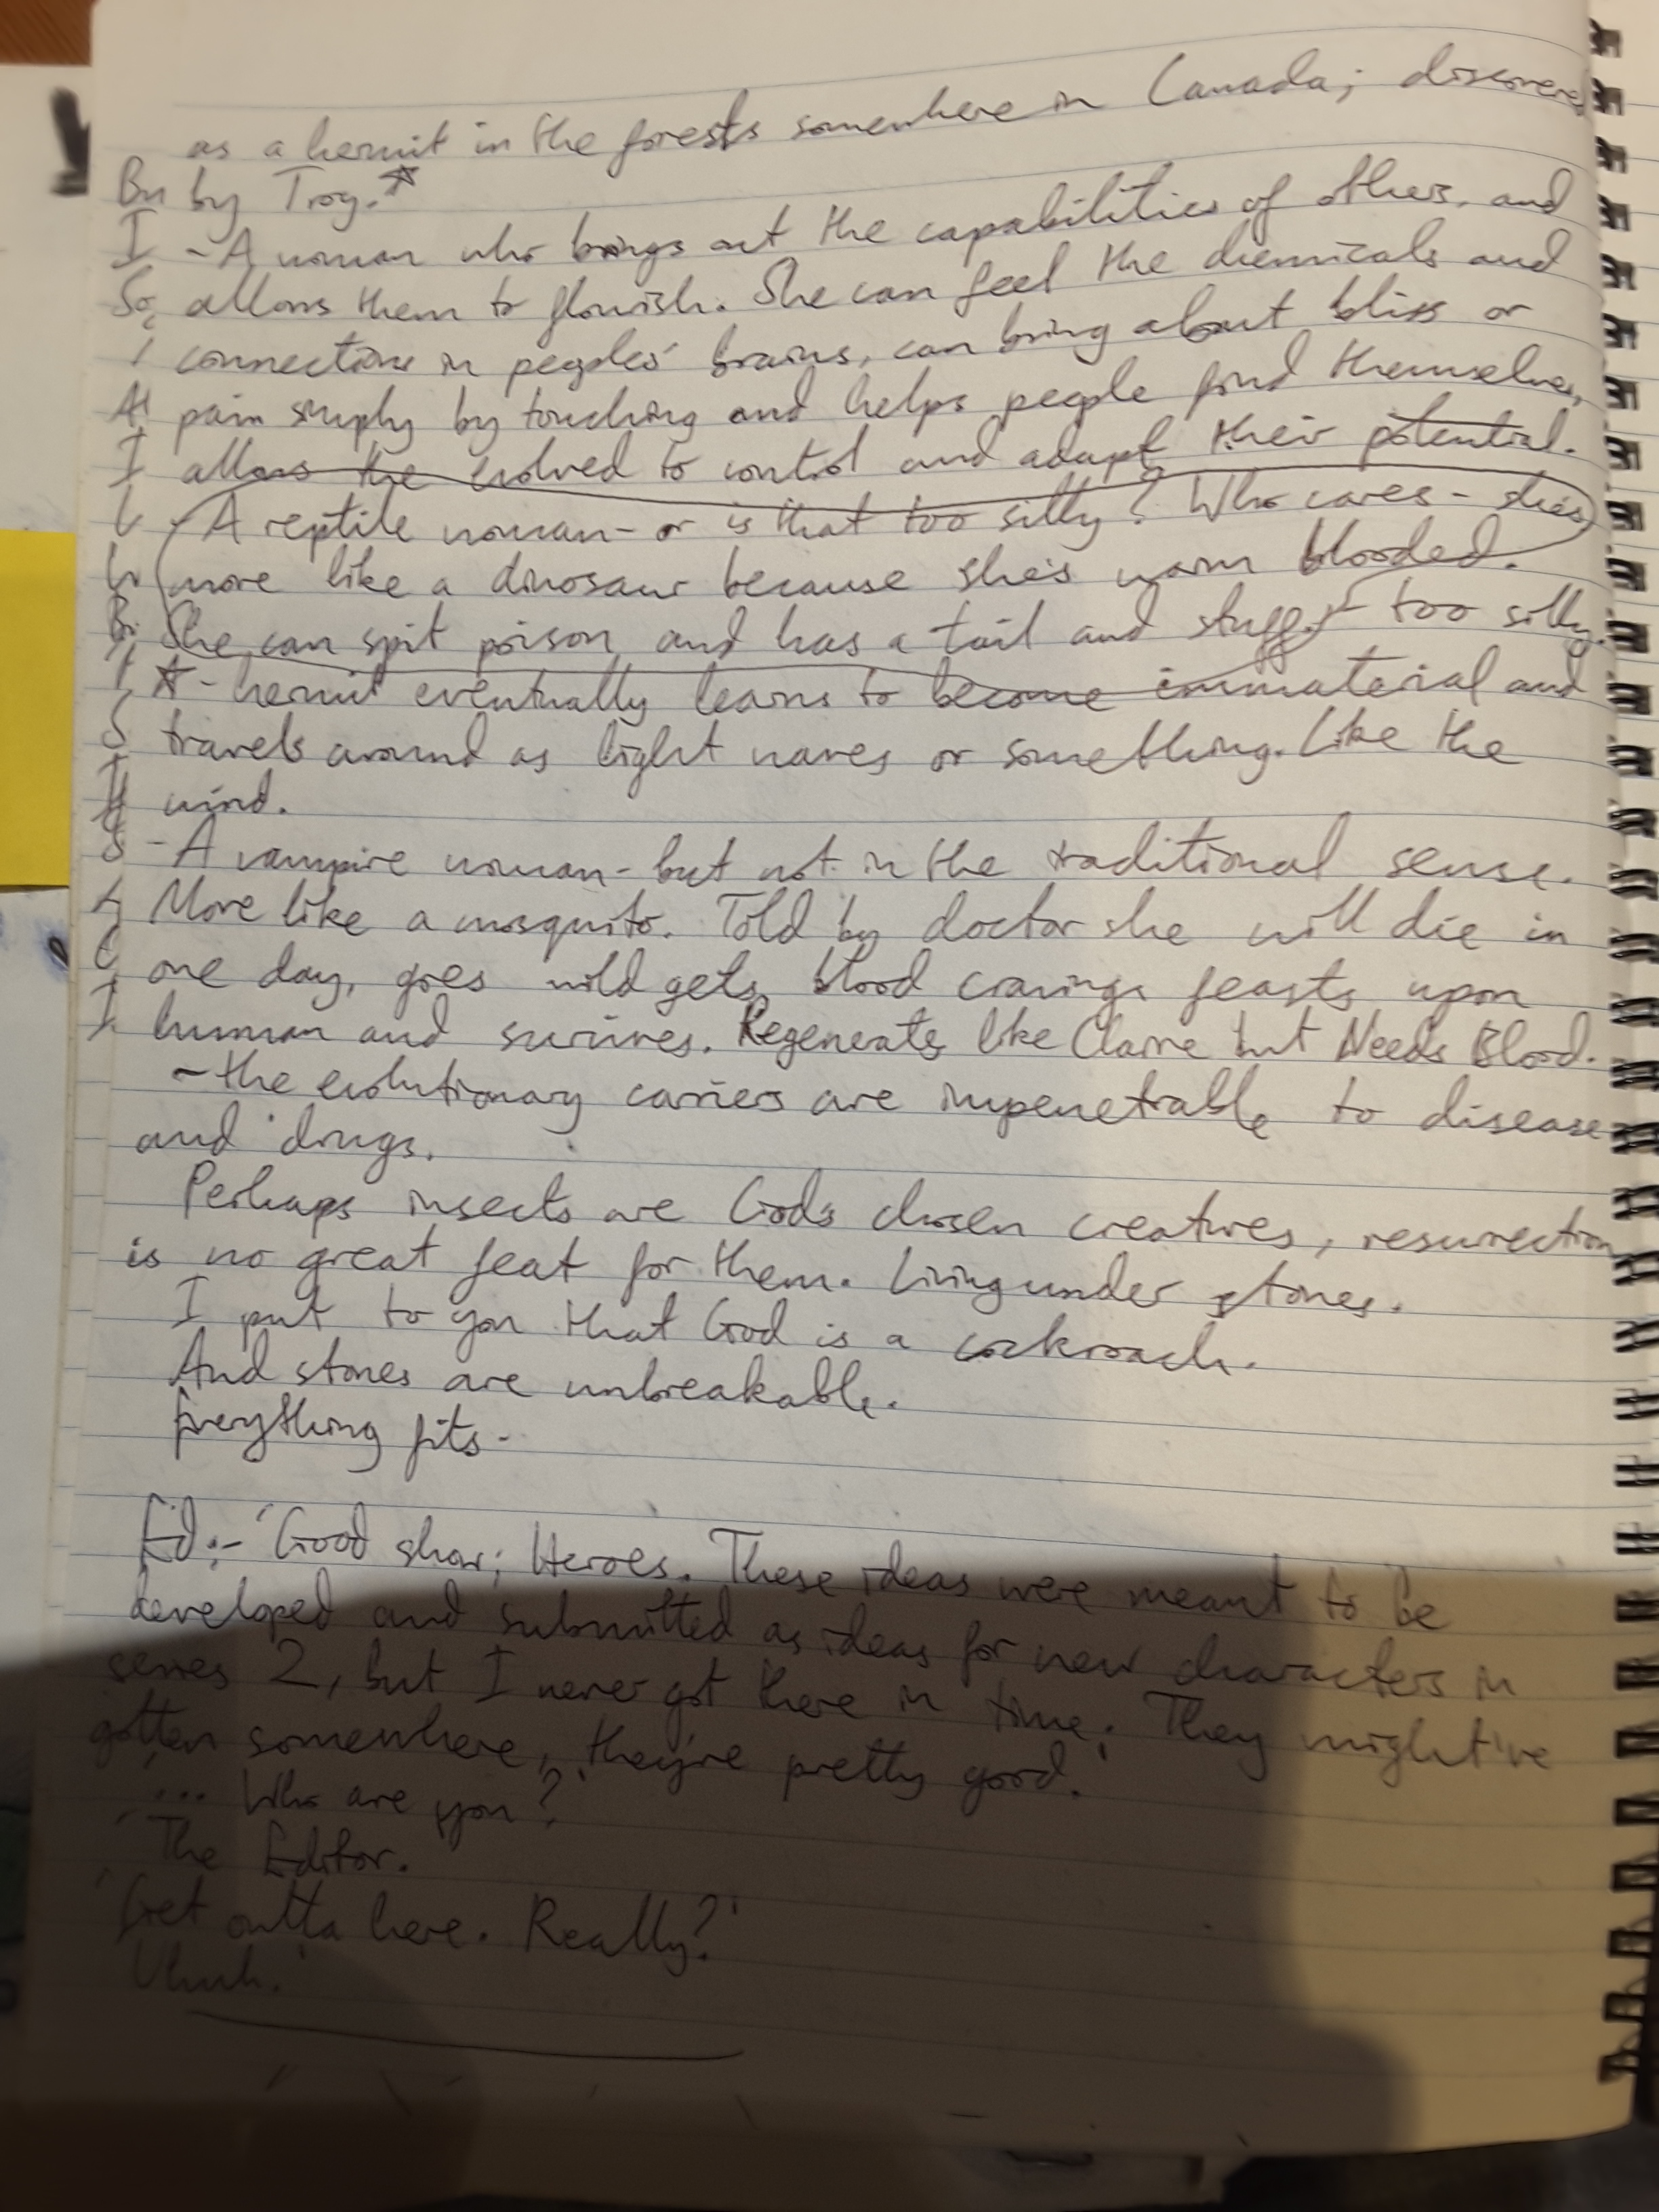 as a hermit in the forests somewhere in Canada; discovered
by Troy.*
- A woman who brings out the capabilities of others, and
allows them to flourish. She can feel the chemicals and
connections in peoples' brains, can bring about bliss or
pain simply by touching and helps people find themselves,
allows the evolved to control and adapt their potential.
A reptile woman - or is that too silly? Who cares - she's
more like a dinosaur because she's warm blooded.
She can spit poison and has a tail and stuff. - too silly.
* - hermit eventually learns to become immaterial and
travels around as light waves or something. Like the
wind.
- A vampire woman - but not in the traditional sense.
More like a mosquito. Told by doctor she will die in
one day, goes wild gets blood cravings feasts upon
human and survives. Regenerates like Claire but Needs Blood.
- the evolutionary carriers are impenetrable to disease
and drugs.
Perhaps insects are God's chosen creatures, resurrection
is no great feat for them. Living under stones.
I put to you that God is a cockroach.
And stones are unbreakable.
Everything fits.
Ed:- 'Good show; Heroes. These ideas were meant to be
developed and submitted as ideas for new characters in
series 2, but I never got there in time. They might've
gotten somewhere, they're pretty good.'
'... Who are you?'
'The Editor.
'Get outta here. Really?'
Uhuh.'
Bu
I
So
I